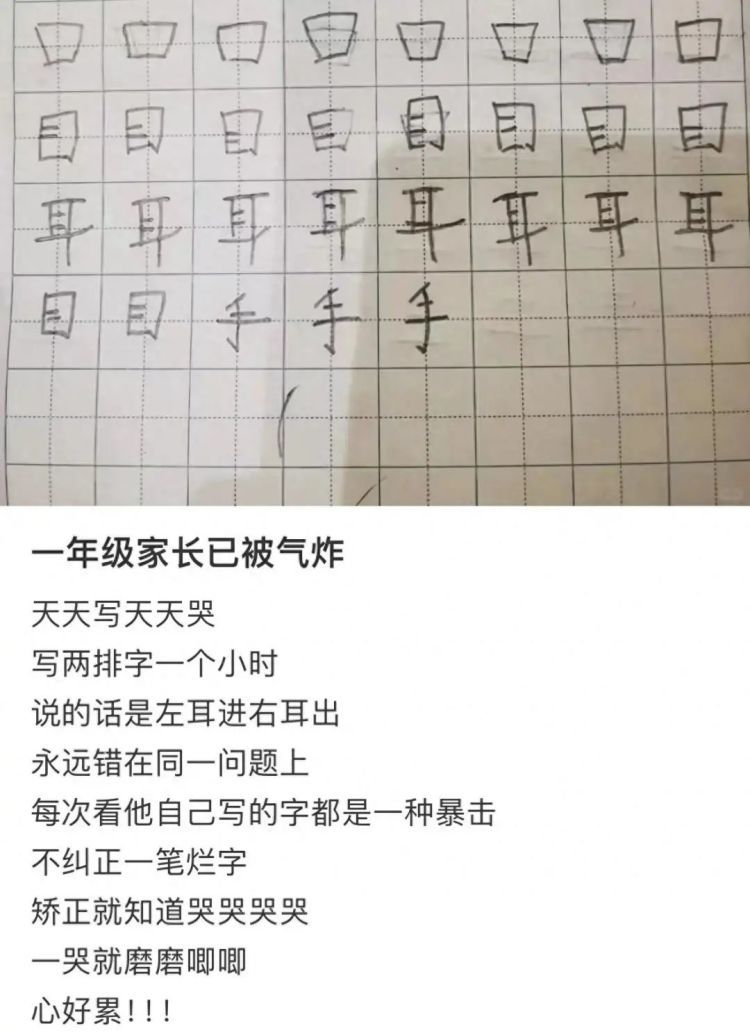 口口口口口口口口
目目目目目目目目
耳耳耳耳耳耳耳耳
目目手手手
一年级家长已被气炸
天天写天天哭
写两排字一个小时
说的话是左耳进右耳出
永远错在同一问题上
每次看他自己写的字都是一种暴击
不纠正一笔烂字
矫正就知道哭哭哭哭
一哭就磨磨唧唧
心好累!!!